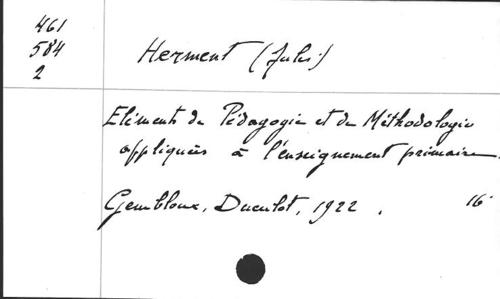 461
584
2
Herment (Jules)
Eléments de Pédagogie et de Méthodologie
appliquées à l'enseignement primaire.
Gembloux, Duculot, 1922. 16°